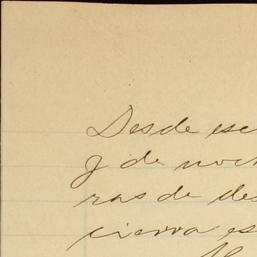 Desde ese
y de noch
ras de des
cierra es